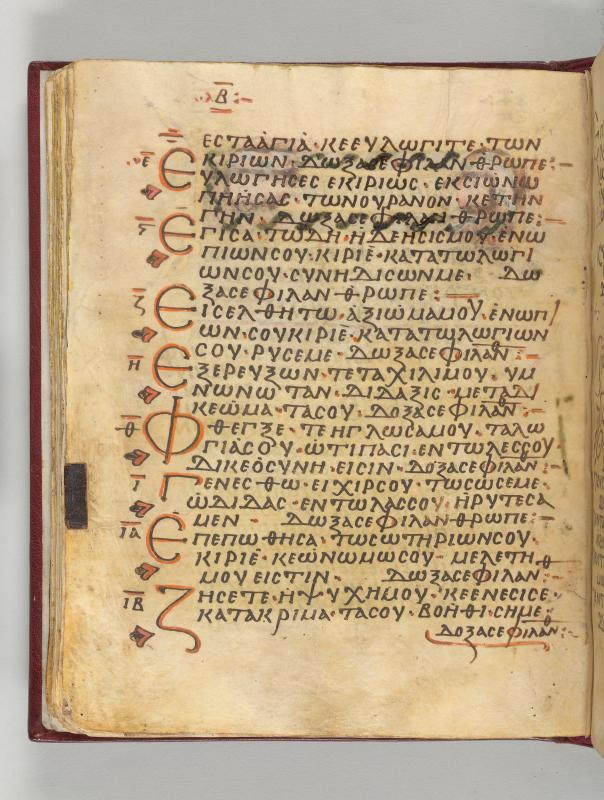 Β
ΕΣΤΑΑΓΙΑ·ΚΕΕΥΛΩΓΙΤΕ·ΤΩΝ
Ε ΕΚΙΡΙΩΝ·ΔΩΞΑϹΕΦΙΛΑΝΘΡΩΠΕ:—
ΥΛΩΓΗϹΕϹ ΕΚΙΡΙΩϹ·ΕΚϹΙΩΝΩ
ΠΗΗϹΑϹ·ΤΩΝΟΥΡΑΝΟΝ·ΚΕΤΗΝ
Ϛ ΕΓΗΝ·ΔΩΞΑϹΕΦΙΛΑΝΘΡΩΠΕ:—
ΓΓΙϹΑ·ΤΩΔΗ·Η̇ΔΕΗϹΙϹΜΟΥ·ΕΝΩ
ΠΙΩΝϹΟΥ·ΚΙΡΙΕ·ΚΑΤΑΤΩΛΩΓΙ
ΩΝϹΟΥ·ϹΥΝΗΔΙϹΩΝΜΕ· ΔΩ
Ζ ΕΞΑϹΕΦΙΛΑΝΘΡΩΠΕ:—
ΙϹΕΛΘΗΤΩ·ΑΞΙΩΜΑΜΟΥ·ΕΝΩΠΙ
ΩΝ·ϹΟΥΚΙΡΙΕ·ΚΑΤΑΤΩΛΩΓΙΩΝ
Η ΕϹΟΥ·ΡΥϹΕΜΕ·ΔΩΞΑϹΕΦΙΛΑΝ:—
ΞΕΡΕΥΞΩΝ·ΤΕΤΑΧΙΛΙΜΟΥ·ΥΜ
ΝΩΝΩ ΤΑΝ·ΔΙΔΑΞΙϹ·ΜΕΤΑΔΙ
ΚΕΩΜΑ·ΤΑϹΟΥ·ΔΟΞΑϹΕΦΙΛΑΝ:—
Θ ΦΘΕΓΞΕ·ΤΕΗΓΛΩϹΑΜΟΥ·ΤΑΛΩ
ΓΙΑϹΟΥ·ΩΤΙΠΑϹΙ·ΕΝΤΩΛΕϹϹΟΥ·
ΔΙΚΕΟϹΥΝΗ·ΕΙϹΙΝ·ΔΟΞΑϹΕΦΙΛΑΝ:—
Ι ΓΕΝΕϹΘΩ·ΕΙΧΙΡϹΟΥ·ΤΩϹΩϹΕΜΕ·
ΩΔΙΔΑϹ·ΕΝΤΩΛΑϹϹΟΥ·ΗΡΥΤΕϹΑ
ΜΕΝ· ΔΩΞΑϹΕΦΙΛΑΝΘΡΩΠΕ:—
ΙΑ ΕΠΕΠΩΘΗϹΑ·ΤΩϹΩΤΗΡΙΩΝϹΟΥ·
ΚΙΡΙΕ·ΚΕΩΝΩΜΩϹΟΥ·ΜΕΛΕΤΗ
ΜΟΥΕΙϹΤΙΝ· ΔΩΞΑϹΕΦΙΛΑΝΘ:—
ΙΒ ΖΗϹΕΤΕ·ΗΨΥΧΗΜΟΥ·ΚΕΕΝΕϹΙϹΕ·
ΚΑΤΑΚΡΙΜΑ·ΤΑϹΟΥ·ΒΟΗΘΙ·ϹΗΜΕ·
ΔΟΞΑϹΕΦΙΛΑΝΘ:—